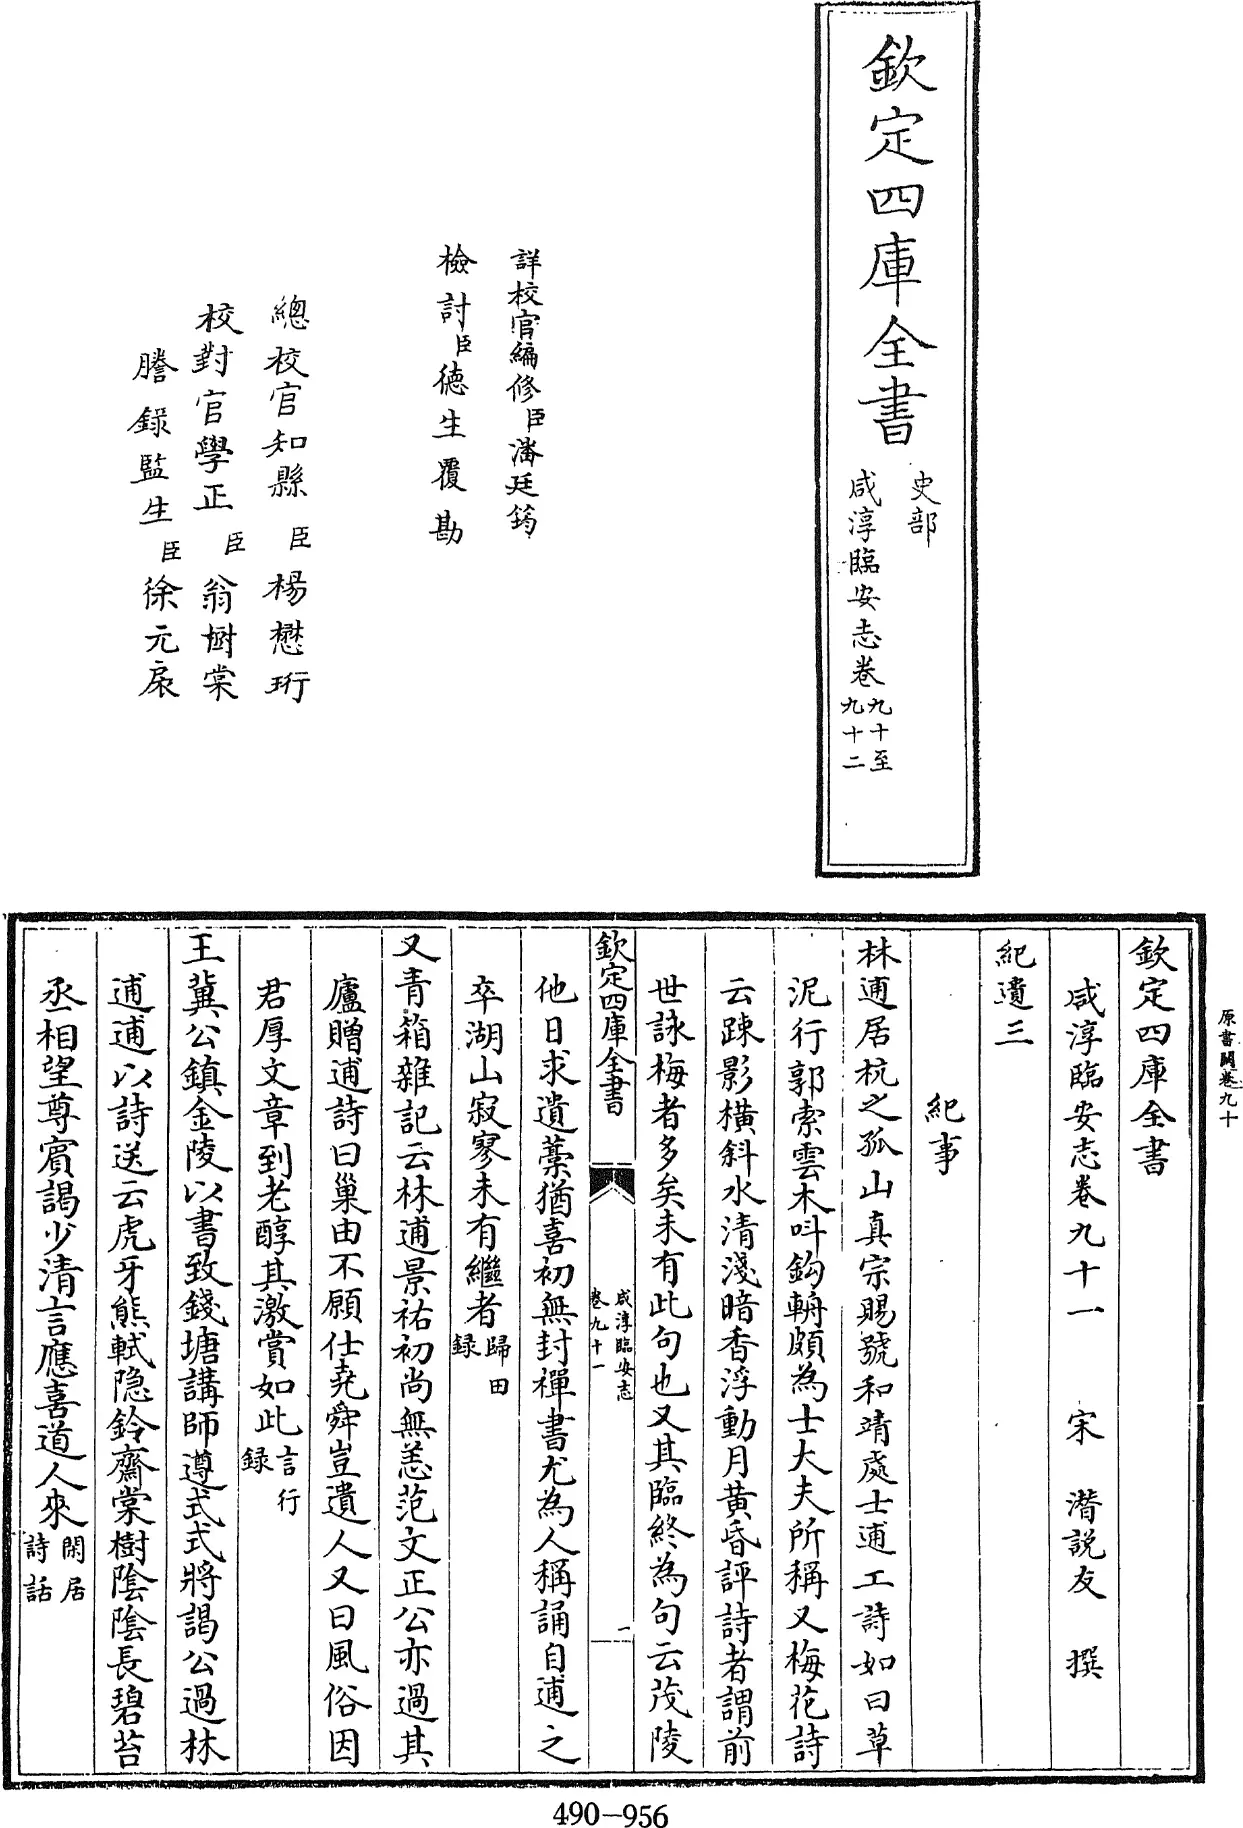 欽定四庫全書
史部
咸淳臨安志卷九十至
九十二
詳校官編修臣潘廷筠
檢討臣德生覆勘
總校官知縣臣楊懋珩
校對官學正臣翁樹棠
謄錄監生臣徐元㞒
原書闕卷九十
欽定四庫全書
咸淳臨安志卷九十一 宋 潜說友 撰
紀遺三
紀事
林逋居杭之孤山真宗賜號和靖處士逋工詩如曰草
泥行郭索雲木呌鈎輈頗為士大夫所稱又梅花詩
云踈影橫斜水清淺暗香浮動月黃昏評詩者謂前
世詠梅者多矣未有此句也又其臨終為句云茂陵
欽定四庫全書
咸淳臨安志
卷九十一
一
他日求遺藁猶喜初無封禪書尤為人稱誦自逋之
卒湖山寂寥未有繼者歸田
録
又青箱雜記云林逋景祐初尚無恙范文正公亦過其
廬贈逋詩曰巢由不願仕堯舜豈遺人又曰風俗因
君厚文章到老醇其激賞如此言行
録
王冀公鎮金陵以書致錢塘講師遵式式將謁公過林
逋逋以詩送云虎牙熊軾隐鈴齋棠樹陰陰長碧苔
丞相望尊賓謁少清言應喜道人來閑居
詩話
490-956